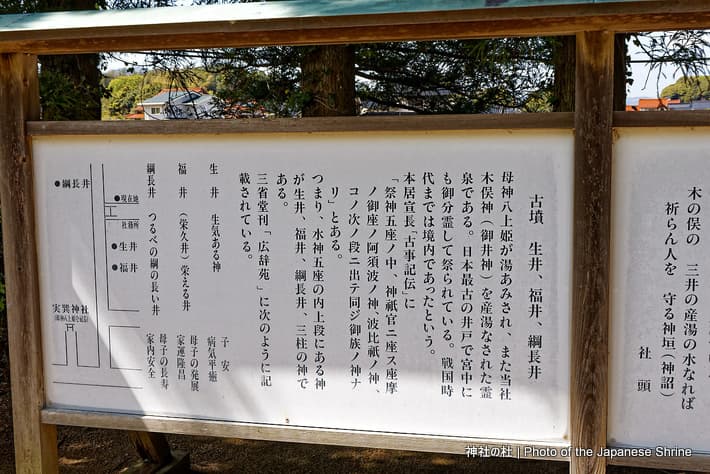 木の俣の　三井の産湯の水なれば
祈らん人を　守る神垣（神詔）
社頭
古墳　生井、福井、綱長井
母神八上姫が湯あみされ、また当社
木俣神（御井神）を産湯なされた霊
泉である。日本最古の井戸で宮中に
も御分霊して祭られている。戦国時
代までは境内であったという。
本居宣長「古事記伝」に
「祭神五座ノ中、神祇官ニ座ス座摩
ノ御座ノ阿須波ノ神、波比祇ノ神、
コノ次ノ段ニ出テ同ジ御族ノ神ナ
リ」とある。
つまり、水神五座の内上段にある神
が生井、福井、綱長井、三柱の神で
ある。
三省堂刊「広辞苑」に次のように記
載されている。
生井　生気ある神
子安
病気平癒
福井　（栄久井）栄える井
母子の発展
家運隆昌
綱長井　つるべの綱の長い井
母子の長寿
家内安全
●現在地
社務所
●生井
●福井
●綱長井
実巽神社
神社の杜 | Photo of the Japanese Shrine